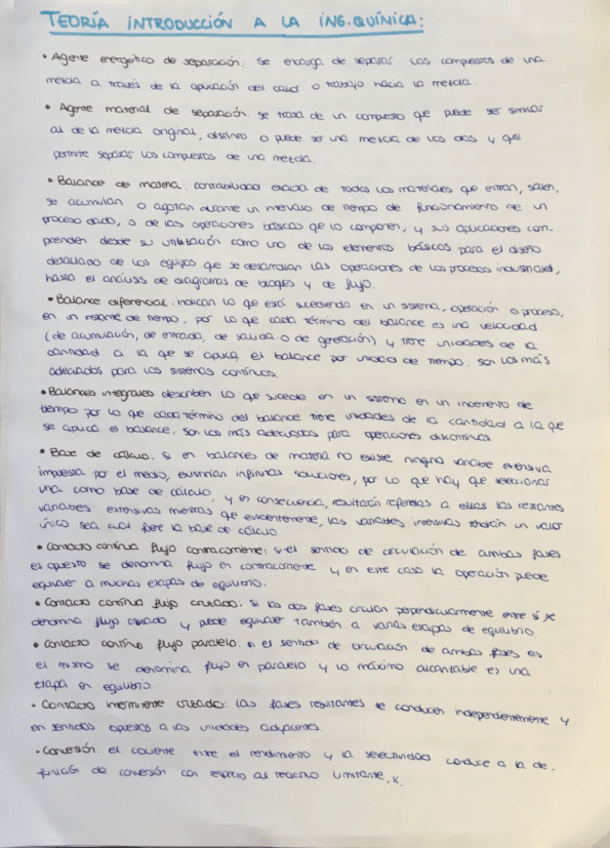 TEORÍA INTRODUCCIÓN A LA ING. QUÍMICA:
• Agente energético de separación: se encarga de separar los compuestos de una
mezcla a través de la aplicación del calor o trabajo hacia la mezcla.
• Agente material de separación: se trata de un compuesto que puede ser similar
al de la mezcla original, distinto o puede ser una mezcla de los dos y que
permite separar los compuestos de una mezcla.
• Balance de materia: contabilidad exacta de todos los materiales que entran, salen,
se acumulan o agotan durante un intervalo de tiempo de funcionamiento de un
proceso dado, o de las operaciones básicas que lo componen, y sus aplicaciones com-
prenden desde su utilización como uno de los elementos básicos para el diseño
detallado de los equipos que se desarrollan las operaciones de los procesos industriales,
hasta el análisis de diagramas de bloques y de flujo.
• Balance diferencial: indican lo que está sucediendo en un sistema, operación o proceso,
en un instante de tiempo, por lo que cada término del balance es una velocidad
(de acumulación, de entrada, de salida o de generación) y tiene unidades de la
cantidad a la que se aplica el balance por unidad de tiempo. son los más
adecuados para los sistemas continuos.
• Balances integrales describen lo que sucede en un sistema en un incremento de
tiempo por lo que cada término del balance tiene unidades de la cantidad a la que
se aplica el balance. Son los más adecuados para operaciones discontinuas
• Base de cálculo: si en balances de materia no existe ninguna variable extensiva
impuesta por el medio, existirían infinitas soluciones, por lo que hay que seleccionar
una como base de cálculo, y en consecuencia, resultarán referidas a ellas las restantes
variables extensivas mientras que evidentemente, las variables intensivas tendrán un valor
único sea cual fuere la base de cálculo.
• Contacto continua flujo contracorriente: si el sentido de circulación de ambas fases
es opuesto se denomina flujo en contracorriente y en este caso la operación puede
equivaler a muchas etapas de equilibrio.
• Contacto continua flujo cruzado: si las dos fases circulan perpendicularmente entre sí se
denomina flujo cruzado y puede equivaler también a varias etapas de equilibrio.
• Contacto continuo flujo paralelo: si el sentido de circulación de ambas fases es
el mismo se denomina flujo en paralelo y lo máximo alcanzable es una
etapa en equilibrio.
• Contacto intermitente cruzado: las fases resultantes se conducen independientemente y
en sentidos opuestos a las unidades adyacentes.
• Conversión: el cociente entre el rendimiento y la selectividad conduce a la de-
finición de conversión con respecto al reactivo limitante, X.